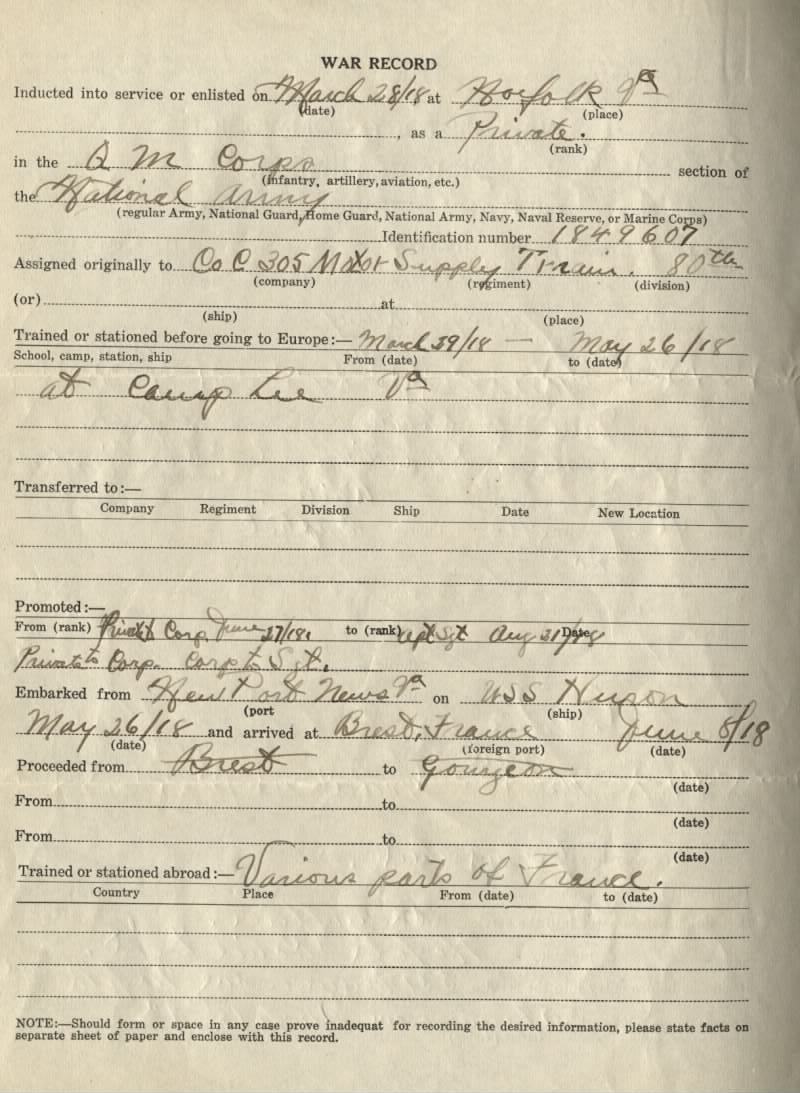 WAR RECORD
Inducted into service or enlisted on March 28/18 at Norfolk Va
(date) (place)
, as a Private.
(rank)
in the Q M Corps section of
(infantry, artillery, aviation, etc.)
the National Army
(regular Army, National Guard, Home Guard, National Army, Navy, Naval Reserve, or Marine Corps)
Identification number 1849607
Assigned originally to Co C 305 Motor Supply Train. 80th
(company) (regiment) (division)
(or) at
(ship) (place)
Trained or stationed before going to Europe:— March 29/18 — May 26/18
School, camp, station, ship From (date) to (date)
at Camp Lee Va
Transferred to:—
Company Regiment Division Ship Date New Location
Promoted:—
From (rank) Private Corp June 27/18. to (rank) Sgt Aug 31/18 Date
Private to Corp. Corp to Sgt.
Embarked from New Port News Va on USS Huron
(port (ship)
May 26/18 and arrived at Brest, France June 8/18
(date) (foreign port) (date)
Proceeded from Brest to
(date)
From to
(date)
From to
(date)
Trained or stationed abroad:— Various parts of France.
Country Place From (date) to (date)
NOTE:—Should form or space in any case prove inadequat for recording the desired information, please state facts on
separate sheet of paper and enclose with this record.